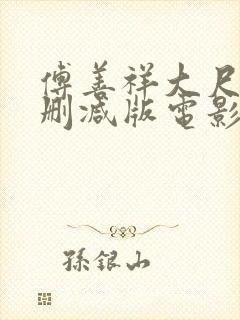 傅善祥大尺
删减版電影
孫銀山